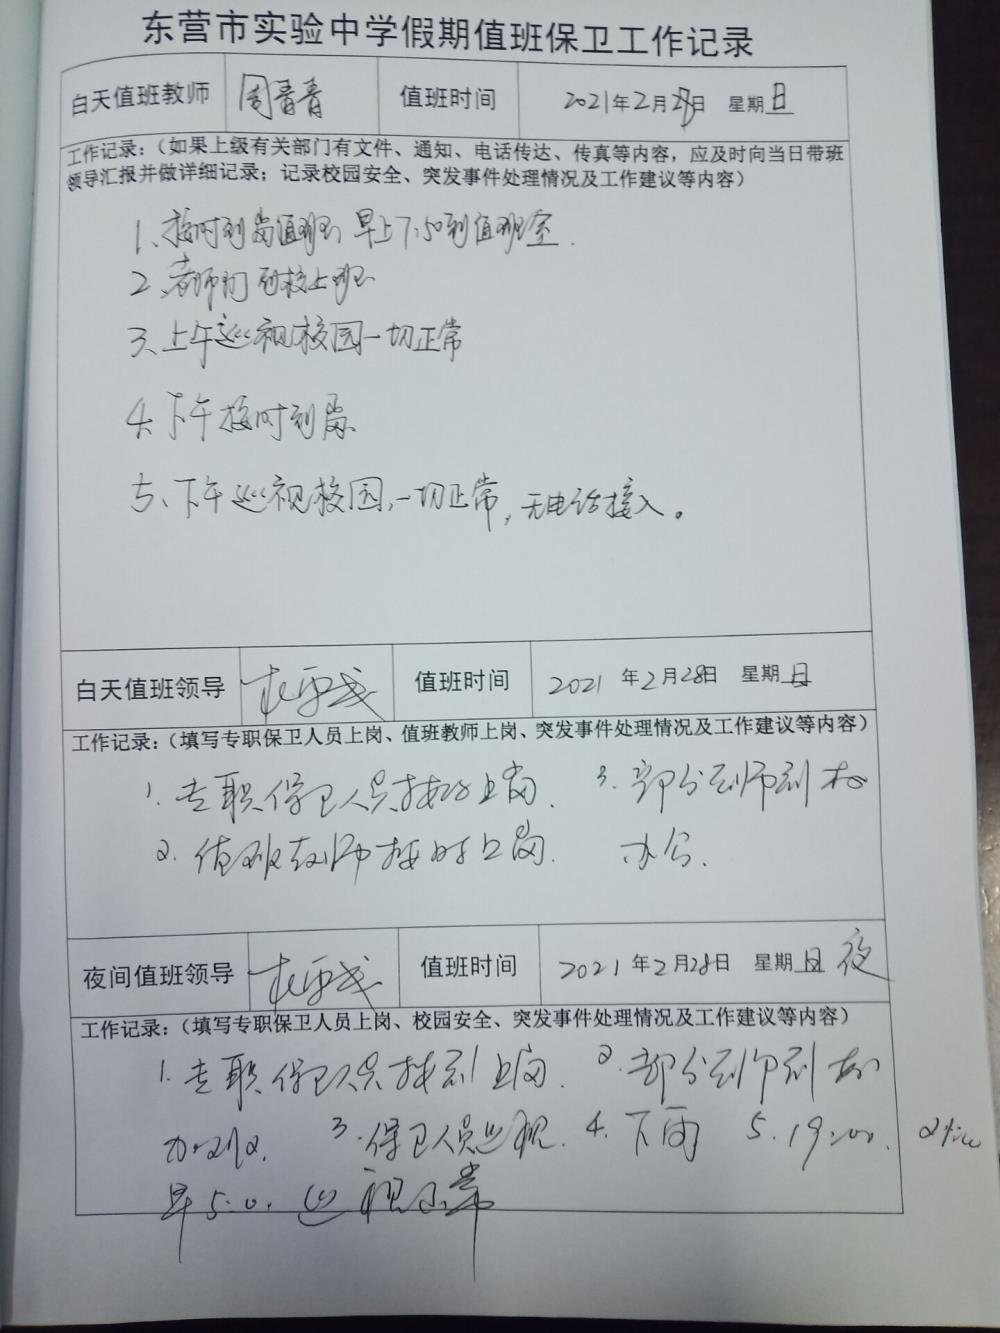 东营市实验中学假期值班保卫工作记录
白天值班教师 周青青 值班时间 2021年2月28日 星期日
工作记录：（如果上级有关部门有文件、通知、电话传达、传真等内容，应及时向当日带班
领导汇报并做详细记录；记录校园安全、突发事件处理情况及工作建议等内容）
1、按时到岗值班 早上7:50到值班室.
2、老师们到校上班
3、上午巡视校园一切正常
4、下午按时到岗
5、下午巡视校园,一切正常,无电话接入。
白天值班领导 值班时间 2021年2月28日 星期日
工作记录：（填写专职保卫人员上岗、值班教师上岗、突发事件处理情况及工作建议等内容）
1. 专职保卫人员按时上岗. 3. 部分教师到校
2. 值班教师按时上岗. 办公.
夜间值班领导 值班时间 2021年2月28日 星期日夜
工作记录：（填写专职保卫人员上岗、校园安全、突发事件处理情况及工作建议等内容）
1. 专职保卫人员按时上岗. 2. 部分教师到校
加班. 3. 保卫人员巡视. 4. 下雨 5. 19:00.
早5:0. 巡视正常